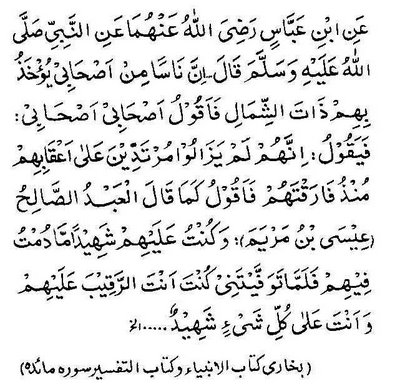 عَنِ ابْنِ عَبَّاسٍ رَضِیَ اللّٰهُ عَنْهُمَا عَنِ النَّبِیِّ صَلَّی
اللّٰهُ عَلَیْهِ وَسَلَّمَ قَالَ۔ اِنَّ نَاسًا مِنْ اَصْحَابِیْ یُؤْخَذُ
بِهِمْ ذَاتَ الشِّمَالِ فَاَقُوْلُ اَصْحَابِیْ اَصْحَابِیْ:
فَیَقُوْلُ: اِنَّهُمْ لَمْ یَزَالُوْا مُرْتَدِّیْنَ عَلٰی اَعْقَابِهِمْ
مُنْذُ فَارَقْتَهُمْ فَاَقُوْلُ كَمَا قَالَ الْعَبْدُ الصَّالِحُ
(عِیْسَی بْنُ مَرْیَمَ): وَكُنْتُ عَلَیْهِمْ شَهِیْدًا مَّا دُمْتُ
فِیْهِمْ فَلَمَّا تَوَفَّیْتَنِیْ كُنْتَ اَنْتَ الرَّقِیْبَ عَلَیْهِمْ
وَاَنْتَ عَلٰی كُلِّ شَیْءٍ شَهِیْدٌ.....الخ
(بخاری کتاب الانبیاء وکتاب التفسیر سورہ مائدہ)